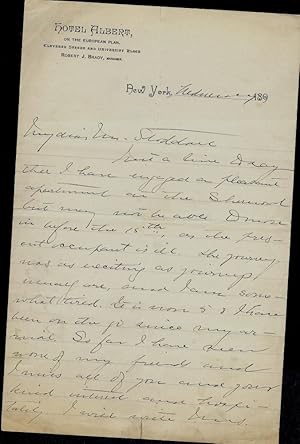 HOTEL ALBERT,
ON THE EUROPEAN PLAN,
ELEVENTH STREET AND UNIVERSITY PLACE
ROBERT J. BRADY, MANAGER.
New York, 189
My dear Mrs. Stoddard
Just a line to say
that I have engaged a pleasant
apartment in the Sherwood
but may not be able to move
in before the 15th as the pres-
ent occupant is ill. The journey
was as exciting as journeys
usually are, and I am some-
what tired. It is now 5 & I have
been on the go since my ar-
rival. So far I have seen
none of my friends and
I miss all of you and your
kind interest and hospi-
tality. I will write Mrs.